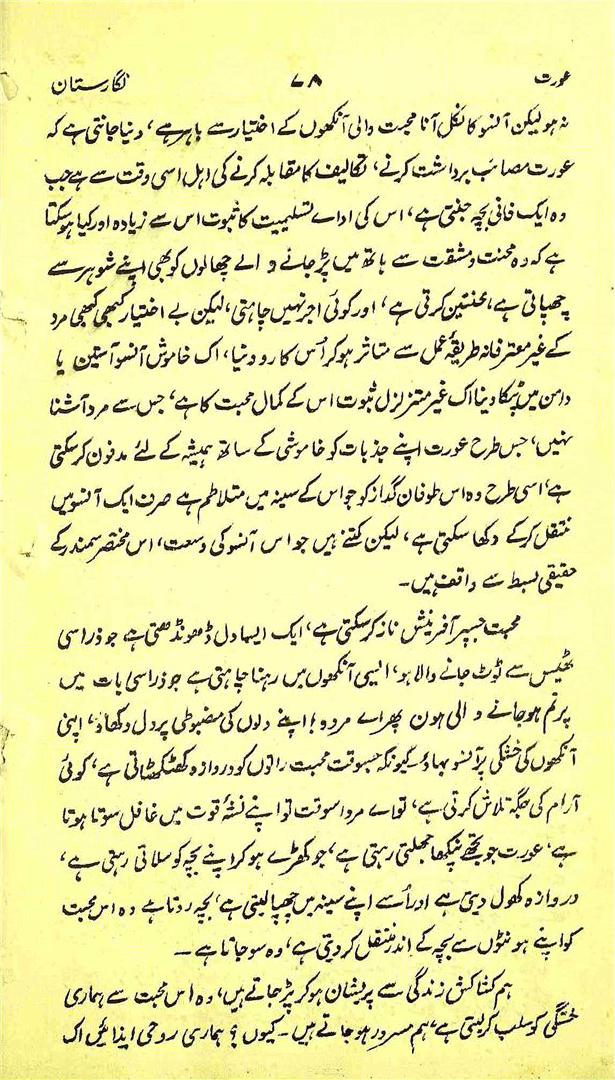 عورت ۷۸ نگارستان
نہ ہو لیکن آنسو کا نکل آنا محبت والی آنکھوں کے اختیار سے باہر ہے، دنیا جانتی ہے کہ
عورت مصائب برداشت کرنے، تکالیف کا مقابلہ کرنے کی اہل اسی وقت سے ہے جب
وہ ایک فانی بچہ جنتی ہے، اس کی اداے تسلیمیت کا ثبوت اس سے زیادہ اور کیا ہو سکتا
ہے کہ وہ محنت و مشقت سے ہاتھ میں پڑ جانے والے چھالوں کو بھی اپنے شوہر سے
چھپاتی ہے، محنتیں کرتی ہے، اور کوئی اجر نہیں چاہتی، لیکن بے اختیار کبھی کبھی مرد
کے غیر معترفانہ طریقۂ عمل سے متاثر ہو کر اُس کا رو دینا، اک خاموش آنسو آستین یا
دامن میں ٹپکا دینا اک غیر متزلزل ثبوت اس کے کمال محبت کا ہے، جس سے مرد آشنا
نہیں، جس طرح عورت اپنے جذبات کو خاموشی کے ساتھ ہمیشہ کے لئے مدفون کر سکتی
ہے، اسی طرح وہ اس طوفان گداز کو جو اس کے سینہ میں متلاطم ہے صرف ایک آنسو میں
منتقل کر کے دکھا سکتی ہے، لیکن کتنے ہیں جو اس آنسو کی وسعت، اس مختصر سمندر کے
حقیقی بسط سے واقف ہیں۔
محبت جسپر آفرینش ناز کر سکتی ہے، ایک ایسا دل ڈھونڈھتی ہے جو ذرا سی
ٹھیس سے ٹوٹ جانے والا ہو، ایسی آنکھوں میں رہنا چاہتی ہے جو ذرا سی بات میں
پر نم ہو جانے والی ہوں پھر اے مردو! اپنے دلوں کی مضبوطی پر دل دکھاؤ، اپنی
آنکھوں کی خشکی پر آنسو بہاؤ کیونکہ جسوقت محبت راتوں کو دروازہ کھٹکھٹاتی ہے، کوئی
آرام کی جگہ تلاش کرتی ہے، تو اے مرد اسوقت تو اپنے نشۂ قوت میں غافل سوتا ہوتا
ہے، عورت جو تجھے پنکھا جھلتی رہتی ہے، جو کھڑے ہو کر اپنے بچہ کو سلاتی رہتی ہے،
دروازہ کھول دیتی ہے اور اُسے اپنے سینہ میں چھپا لیتی ہے، بچہ روتا ہے وہ اس محبت
کو اپنے ہونٹوں سے بچہ کے اندر منتقل کر دیتی ہے، وہ سو جاتا ہے۔
ہم کشاکش زندگی سے پریشان ہو کر پڑ جاتے ہیں، وہ اس محبت سے ہماری
خستگی کو سلب کر لیتی ہے، ہم مسرور ہو جاتے ہیں۔ کیوں؟ ہماری روحی ایذائیں اک